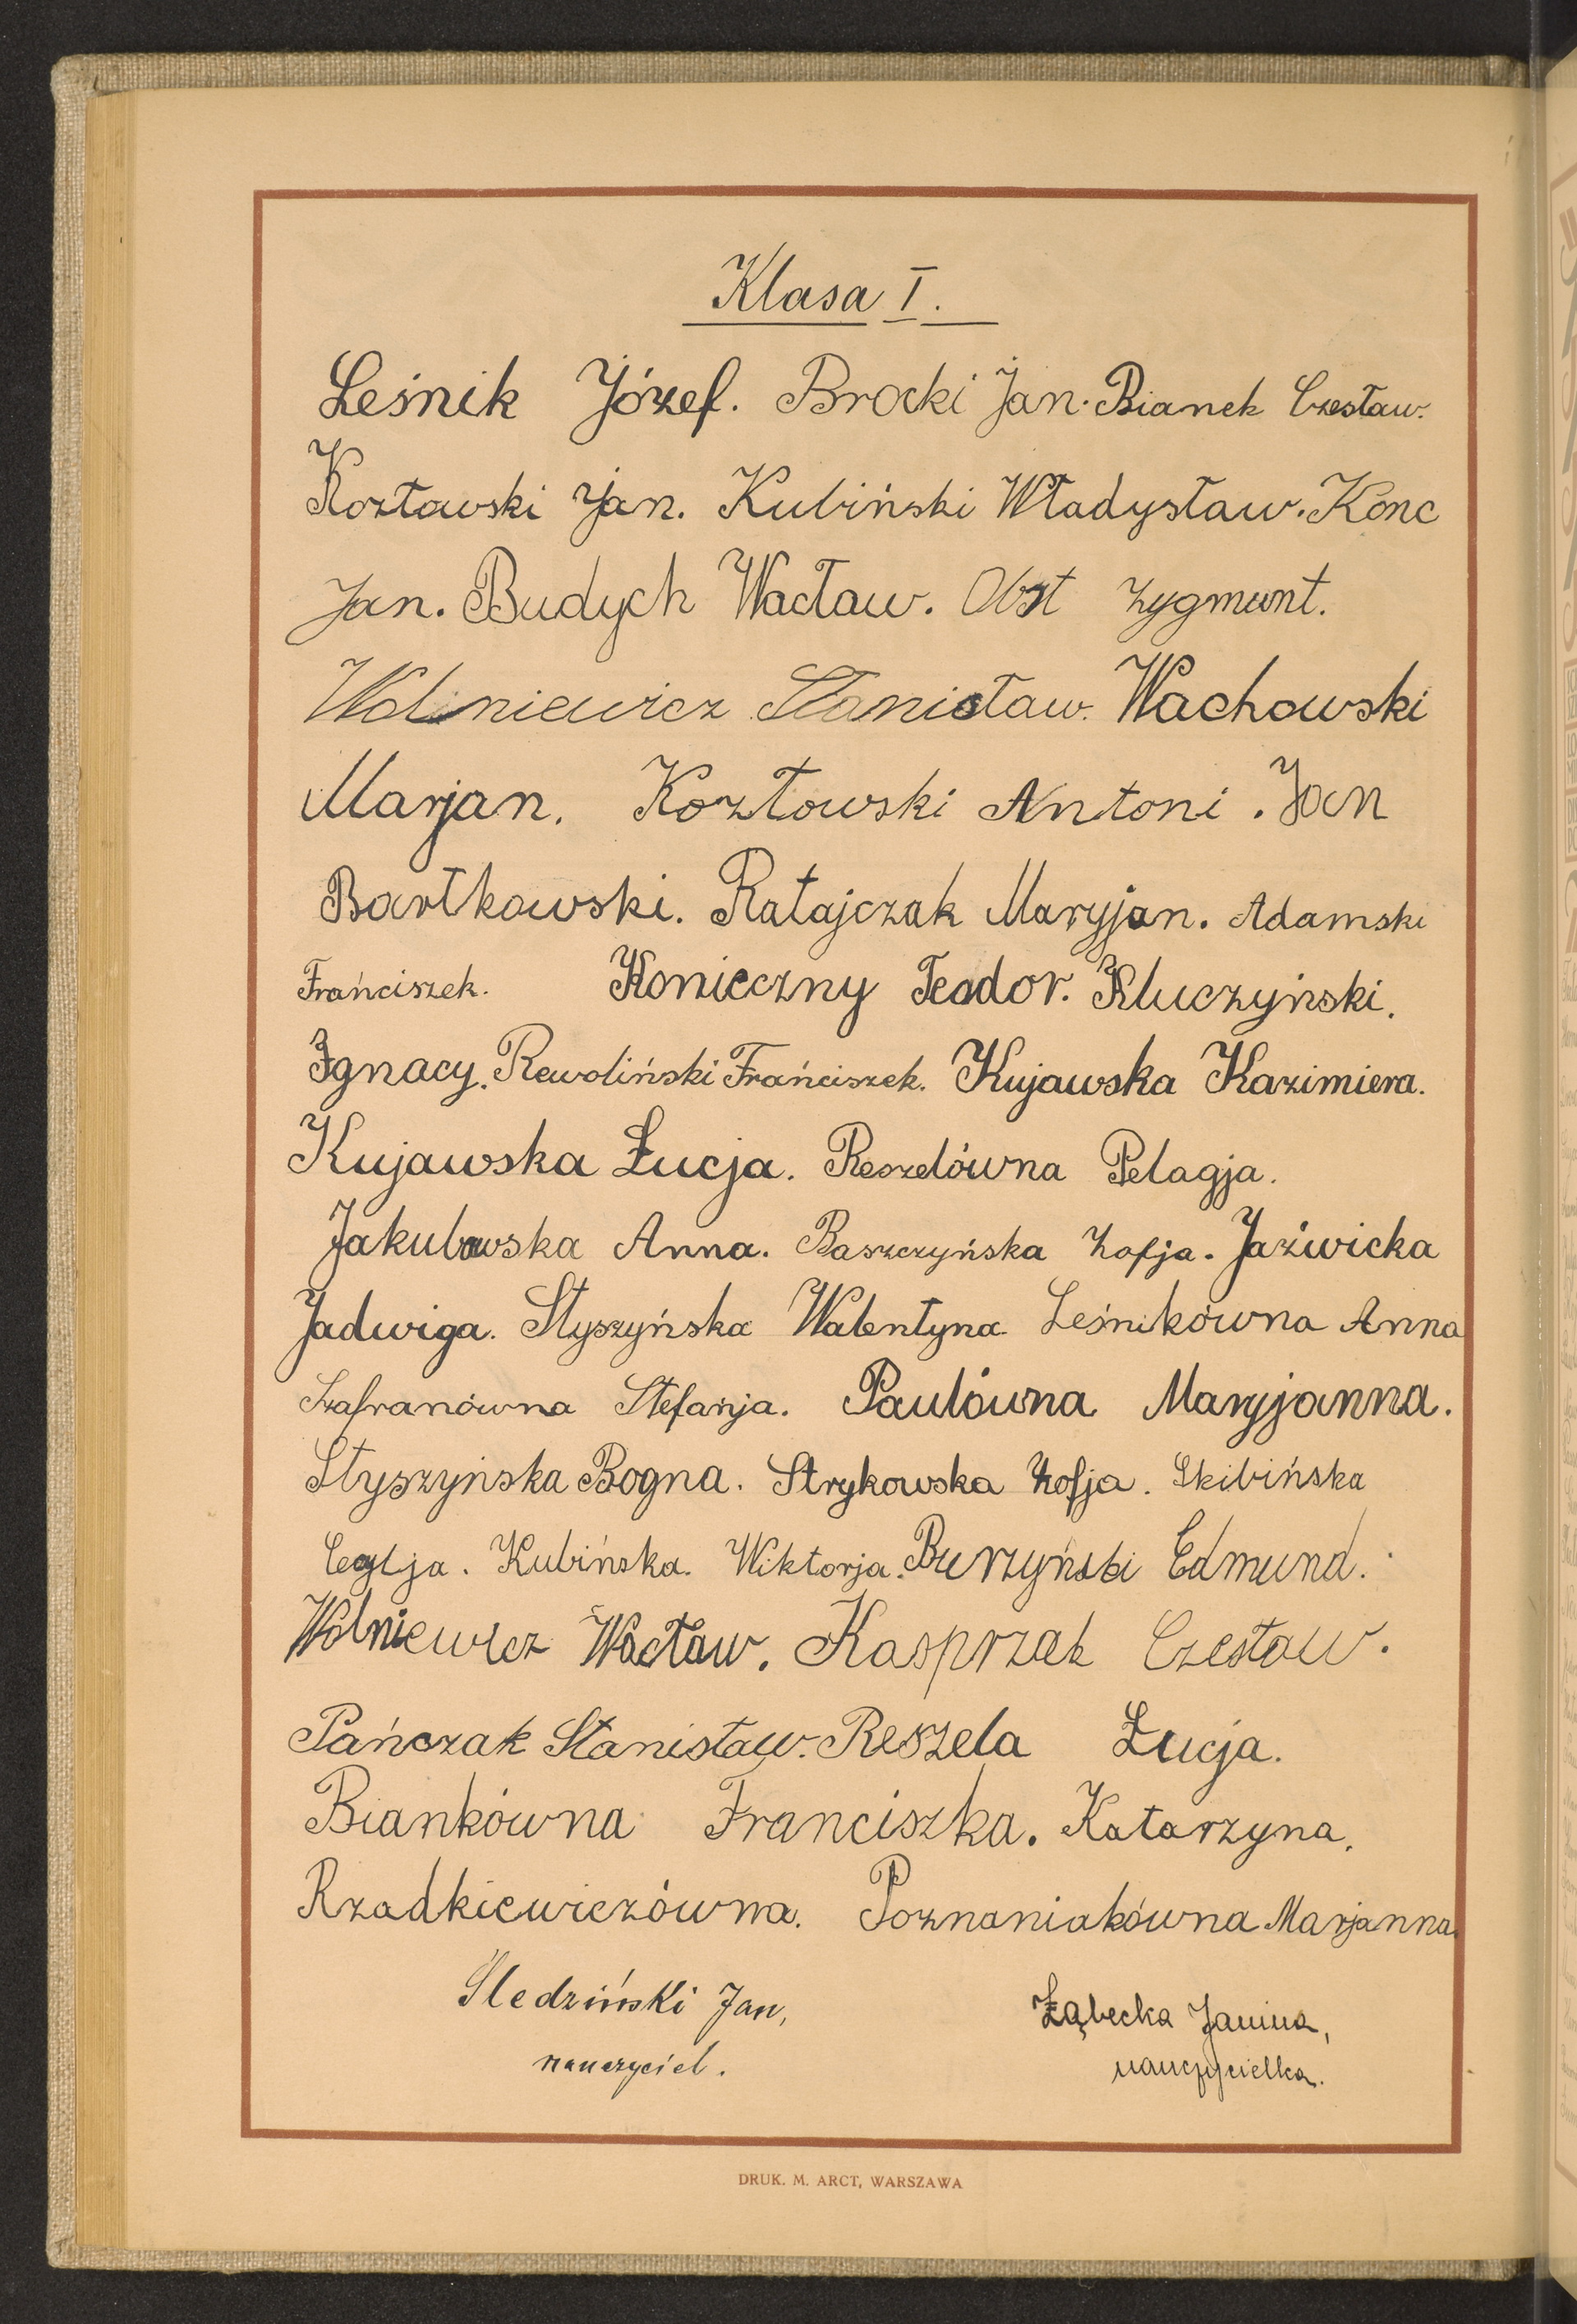 Klasa I.
Leśnik Józef. Brocki Jan. Bianek Czesław.
Kozławski Jan. Kubiński Władysław. Konc
Jan. Budych Wacław. Obst Zygmunt.
Wolniewicz Stanisław. Wachowski
Marjan. Kozłowski Antoni. Jan
Bartkowski. Ratajczak Maryjan. Adamski
Frańciszek. Konieczny Teodor. Kluczyński.
Ignacy. Rewoliński Frańciszek. Kujawska Kazimiera.
Kujawska Łucja. Reszelówna Pelagja.
Jakubowska Anna. Baszczyńska Zofja. Jaźwicka
Jadwiga. Styszyńska Walentyna Leśnikówna Anna
Szafranówna Stefanja. Paulówna Maryjanna.
Styszyńska Bogna. Strykowska Zofja. Skibińska
Cecylja. Kubińska. Wiktorja. Burzyński Edmund.
Wolniewicz Wacław. Kasprzak Czesław.
Pańczak Stanisław. Reszela Łucja.
Biankówna Franciszka. Katarzyna.
Rzadkiewiczówna. Poznaniakówna Marjanna.
Śledziński Jan, Łąbecka Janina,
nauczyciel. nauczycielka.
DRUK. M. ARCT, WARSZAWA